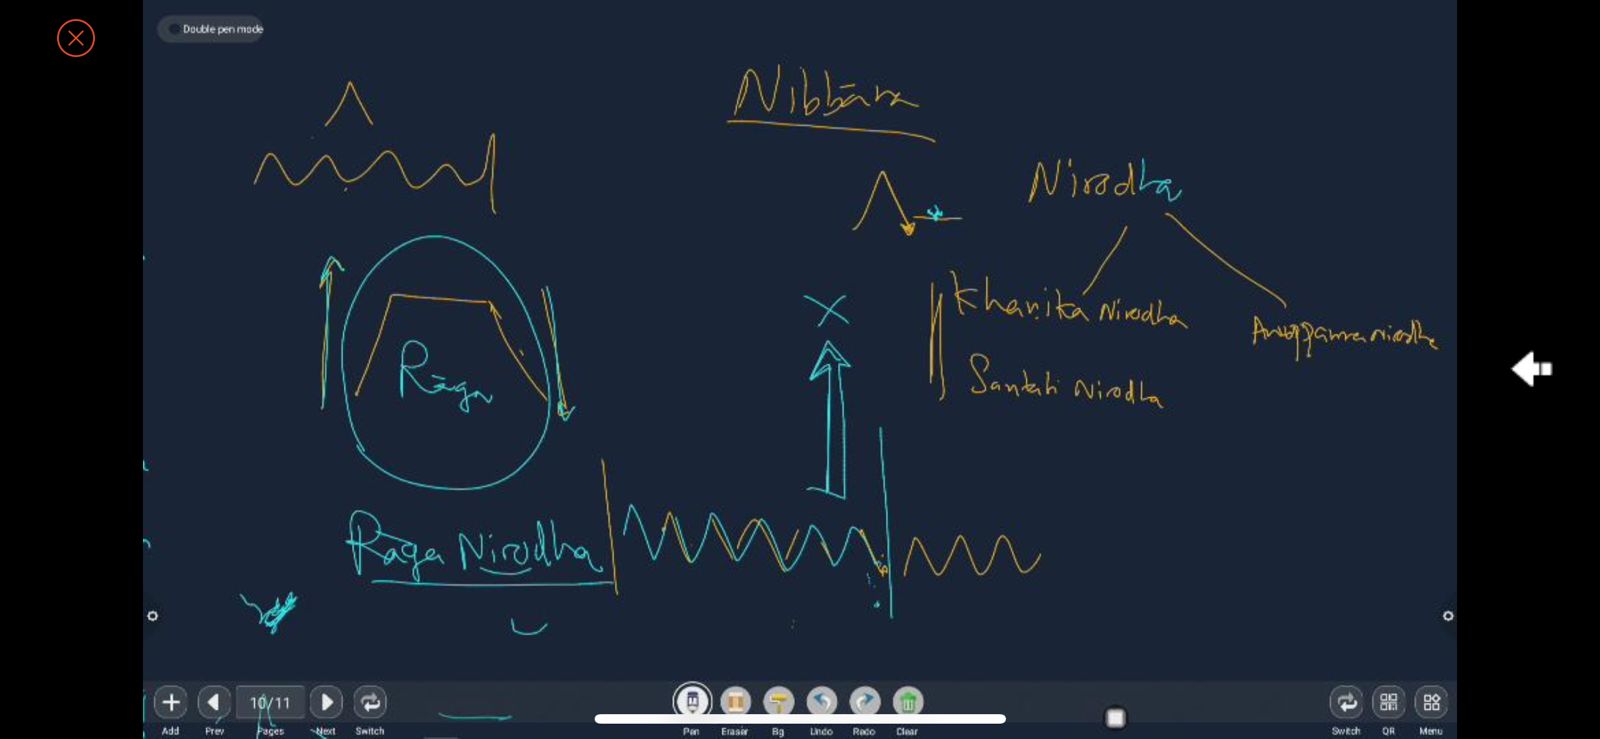 Double pen mode
Nibbāna
Nirodha
Khanika Nirodha
Santati Nirodha
Rāga
Raga Nirodha
10/11
Add
Prev
Pages
Next
Switch
Pen
Eraser
Bg
Undo
Redo
Clear
Switch
QR
Menu